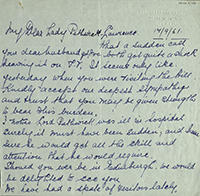 14/9/61.
My Dear Lady Pethick Lawrence
What a sudden call
You dear husband got, we both got quite a shock
hearing it on T.V. It seems only like
yesterday when you were visiting the hill
Kindly accept our deepest sympathy
and trust that you may be given strength
to bear this burden,
I note Lord Pethwick was ill in hospital
Surely it must have been sudden, and I am
sure he would get all the skill and
attention that he would require.
Should you ever be in Edinburgh, we would
be delighted to see you
We have had a spate of visitors lately,